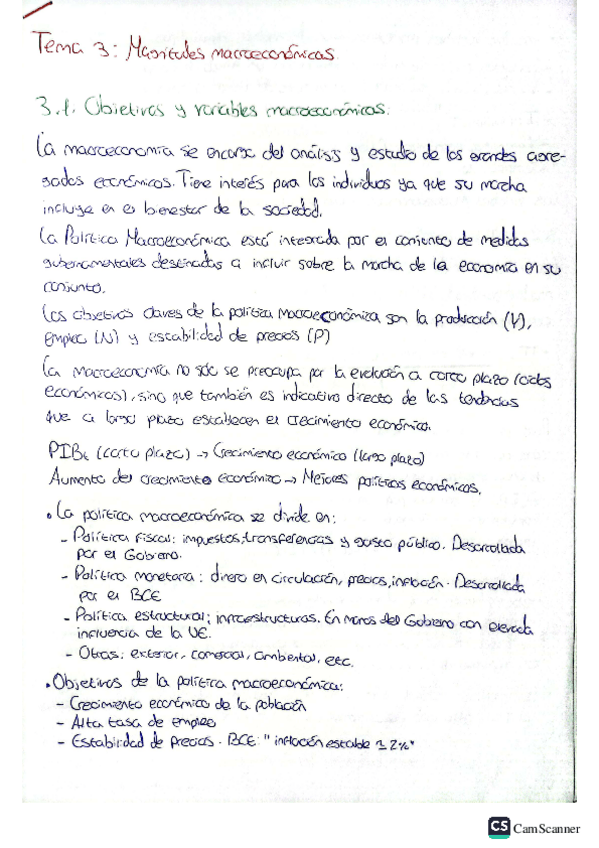 Tema 3: Magnitudes macroeconómicas.
3.1. Objetivos y variables macroeconómicas.
La macroeconomía se encarga del análisis y estudio de los grandes agre-
gados económicos. Tiene interés para los individuos ya que su marcha
incluye en el bienestar de la sociedad.
La Política Macroeconómica está integrada por el conjunto de medidas
gubernamentales destinadas a incluir sobre la marcha de la economía en su
conjunto.
Los objetivos claves de la política macroeconómica son la producción (Y),
empleo (N) y estabilidad de precios (P)
La macroeconomía no sólo se preocupa por la evolución a corto plazo (ciclos
económicos), sino que también es indicativo directo de las tendencias
que a largo plazo establecen el crecimiento económico.
PIBt (corto plazo) → Crecimiento económico (largo plazo)
Aumento del crecimiento económico → Mejores políticas económicas.
• La política macroeconómica se divide en:
- Política fiscal: impuestos, transferencias y gasto público. Desarrollada
por el Gobierno.
- Política monetaria: dinero en circulación, precios, inflación. Desarrollada
por el BCE
- Política estructural: infraestructuras. En manos del Gobierno con elevada
influencia de la UE.
- Otras: exterior, comercial, ambiental, etc.
• Objetivos de la política macroeconómica:
- Crecimiento económico de la población
- Alta tasa de empleo
- Estabilidad de precios. BCE: "inflación estable ± 2%"
CS CamScanner